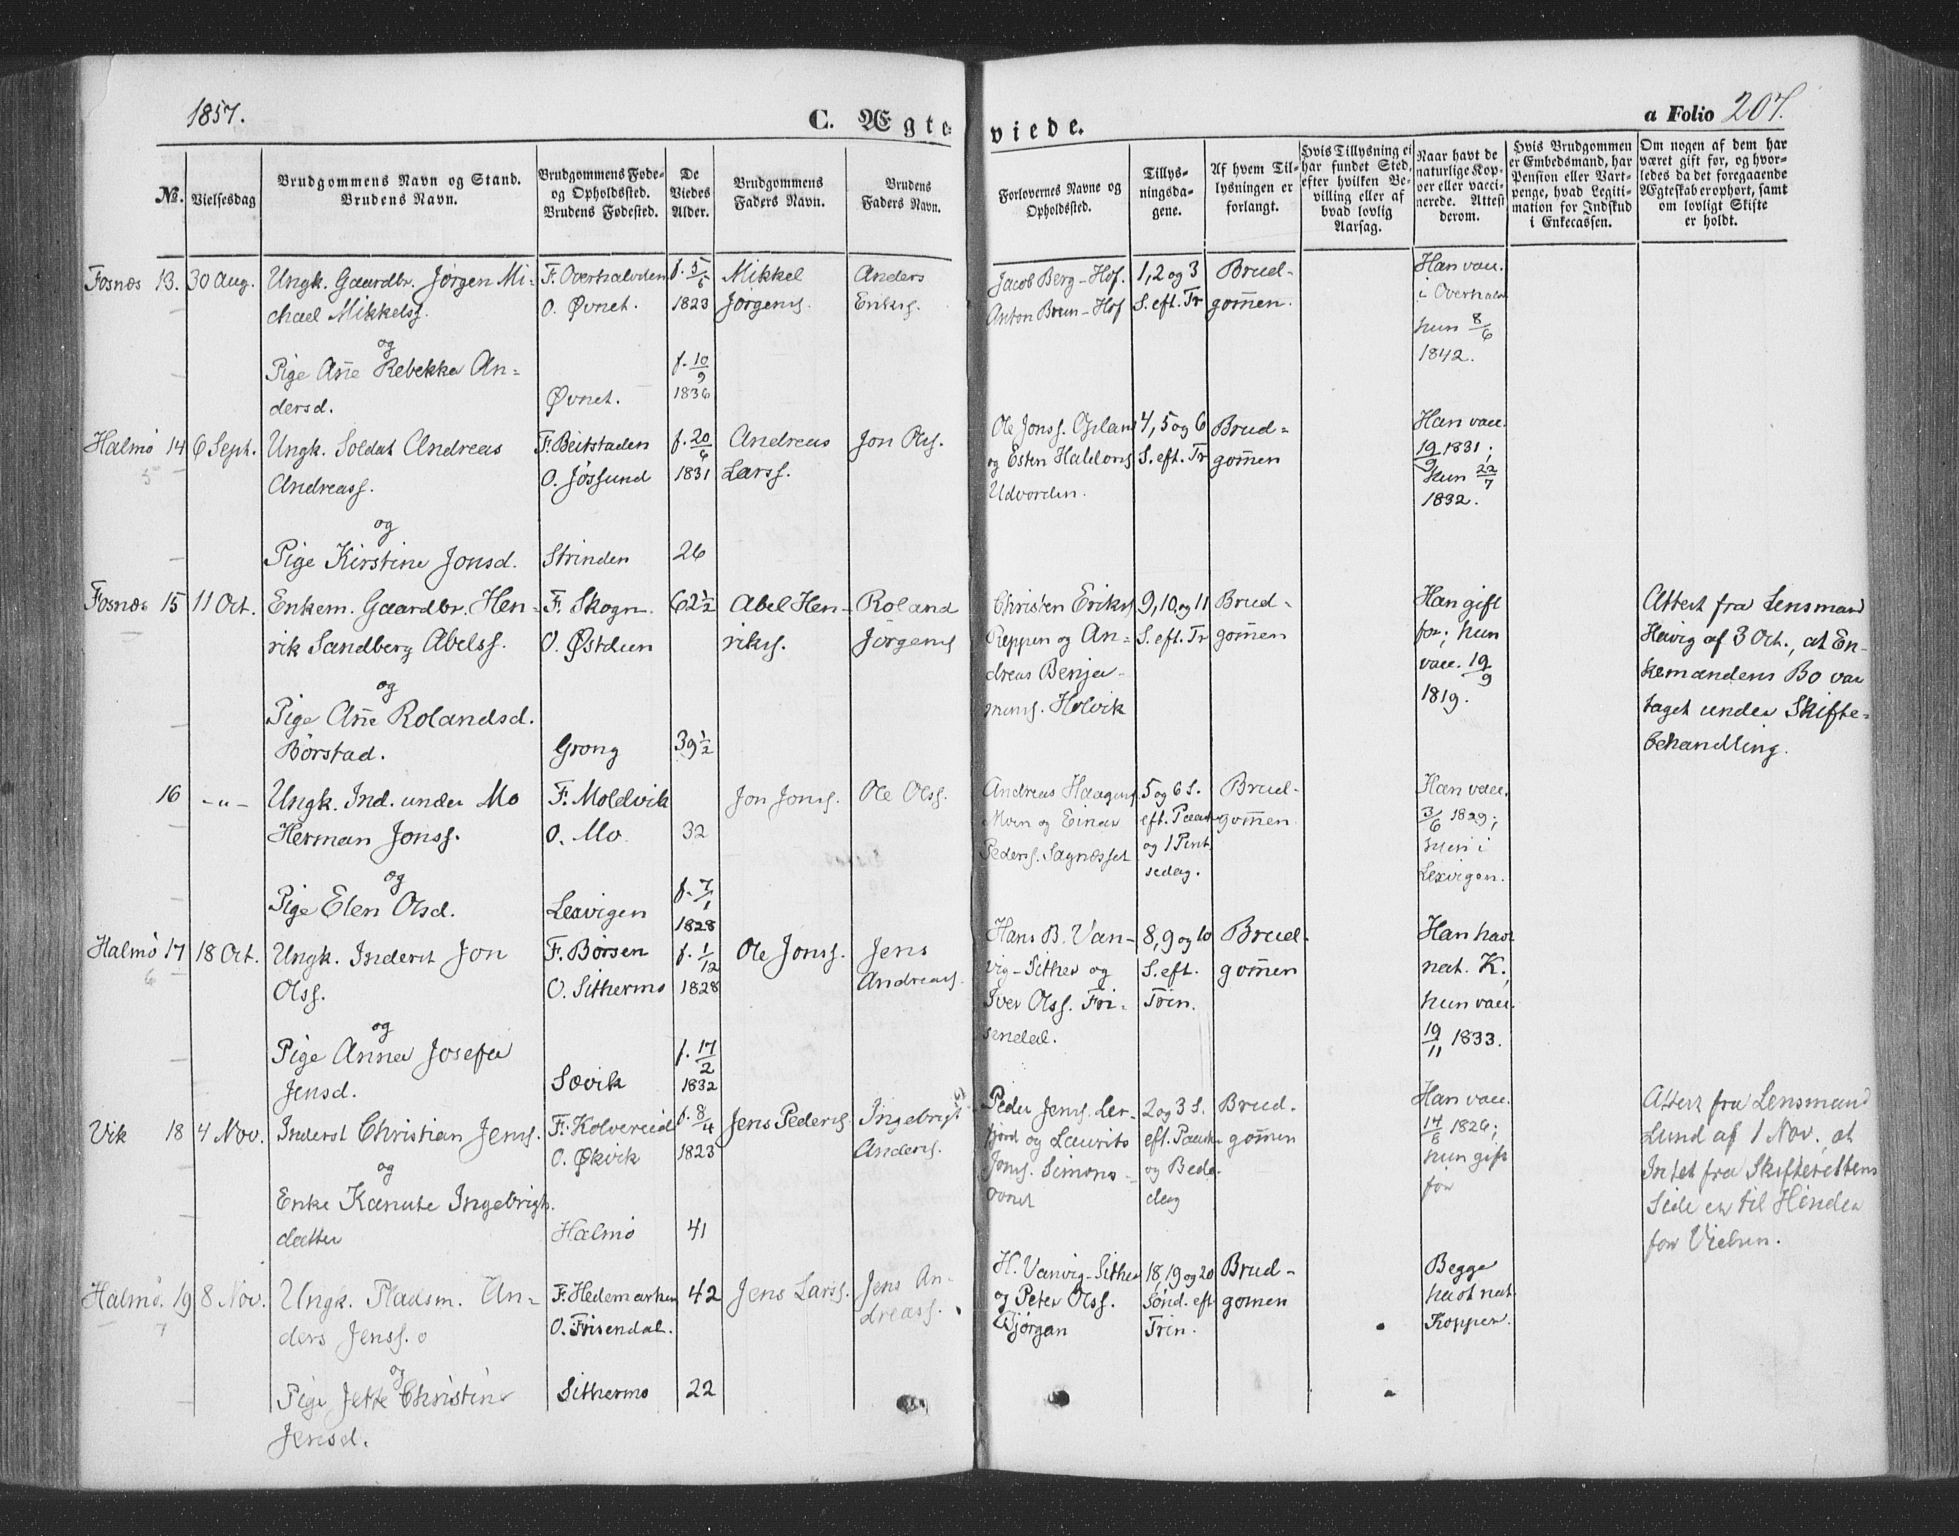 1857.
C. Ægte-
viede.
a Folio 207.
No.
Vielsesdag
Brudgommens Navn og Stand.
Brudens Navn.
Brudgommens Føde-
og Opholdssted.
Brudens Fødested.
De
Viedes
Alder.
Brudgommens
Faders Navn.
Brudens
Faders Navn.
Forlovernes Navne og
Opholdssted.
Tillys-
ningsda-
gene.
Af hvem Til-
lysningen er
forlangt.
Hvis Tillysning ei
har fundet Sted,
efter hvilken Be-
villing eller af
hvad lovlig
Aarsag.
Naar havt de
naturlige Kop-
per eller vacci-
nerede. Attest
derom.
Hvis Brudgommen
er Embedsmand, har
Pension eller Vart-
penge, hvad Legiti-
mation for Indskud
i Enkecassen.
Om nogen af dem har
været gift før, og hvor-
ledes da det foregaaende
Ægteskab er ophørt, samt
om lovligt Skifte
er holdt.
Fosnæs 13. 30 Aug.
Ungk. Gaardbr. Jørgen Mi-
chael Mikkelss.
og
Pige Añe Rebekka An-
dersd.
F. Overhalvden
O. Øvnet.
Øvnet.
f. 5/6
1823
f. 10/9
1836
Mikkel
Jørgens.
Anders
Jacob Berg - Hof.
Anton Brun - Hof
1, 2 og 3
S. eft. Tr
Brud-
gom̄en.
Han vacc.
i Overhalv
hun 8/6
1842.
Halmø 14 6 Sept.
5
Ungk. Soldat Andreas
Andreass.
og
Pige Kirstine Jonsd.
F. Beitstaden
O. Jøssund
Strinden
f. 20/6
1831
26
Andreas
Larss.
Jon Ols.
Ole Jonss.
og Esten Haldors
Udvorden.
4, 5 og 6
S. eft. Tr
Brud-
gom̄en
Han vacc.
19/9 1831;
hun 22/7
1832.
Fosnæs 15 11 Oct.
Enkem. Gaardbr. Hen-
rik Sandberg Abelss.
og
Pige Añe Rolandsd.
Børstad.
F. Skogn
O. Østduun
Grong
62 1/2
39 1/2
Abel Hen-
riks.
Roland
Jørgens
Christen Eriks
Reppen og An-
dreas Benja-
mins. Holvik
9, 10, og 11
S. eft. Tr
Brud-
gom̄en
Han gift
før; hun
vacc. 19/9
1819.
Attest fra Lensmand
Havig af 3 Oct., at En-
kemandens Bo var
taget under Skifte-
behandling.
16 -"-
Ungk. Ind. under Mo
Herman Jonss.
og
Pige Elen Olsd.
F. Moldvik
O. Mo
Lexvigen
32
f. 7/1
1828
Jon Jons.
Ole Olss.
Andreas Haagens
Moen og Einar
Peders. Sagnæsset
5 og 6 S.
eft. Paask
og 1 Pint
sedag.
Brud-
gom̄en
Han vacc.
3/6 1829;
hun i
Lexvigen.
Halmø 17 18 Oct.
6
Ungk. Inderst Jon
Olss.
og
Pige Anna Josefa
Jensd.
F. Børsen
O. Sithermo
Sævik
f. 1/12
1828
f. 17/2
1832
Ole Jonss.
Jens
Andreass.
Hans B. Van-
vig - Sither og
Iver Olss. Fri-
sendal.
8, 9 og 10
S. eft.
Trin.
Brud-
gom̄en
Han havt
nat. K.;
hun vacc.
19/11 1833.
Vik 18 4 Nov.
Inderst Christian Jens.
og
Enke Kanute Ingebrigts
datter
F. Kolvereid
O. Økvik
Halmø
f. 8/4
1823
41
Jens Peders
Ingebrigt
Anders.
Peder Jens. Ler-
fjord og Laurits
Jons. Simons-
2 og 3 S.
eft. Paask
og Bede-
dag
Brud-
gom̄en
Han vacc.
14/8 1826;
hun gift
før
Attest fra Lensmand
Lund af 1 Nov., at
Intet fra Skifterettens
Side er til Hinder
for Vielsen.
Halmø. 19 8 Nov.
7
Ungk. Pladsm. An-
ders Jenss. o
og
Pige Jette Christine
Jensd.
F. Hedemarken
O. Frisendal.
Sithermo
42
22
Jens Larss.
Jens An-
dreass.
H. Vanvig - Sither
og Peter Olss.
18, 19 og 20
Sønd. eft
Trin.
Brud-
gom̄en
Begge
havt nat
Kopper.